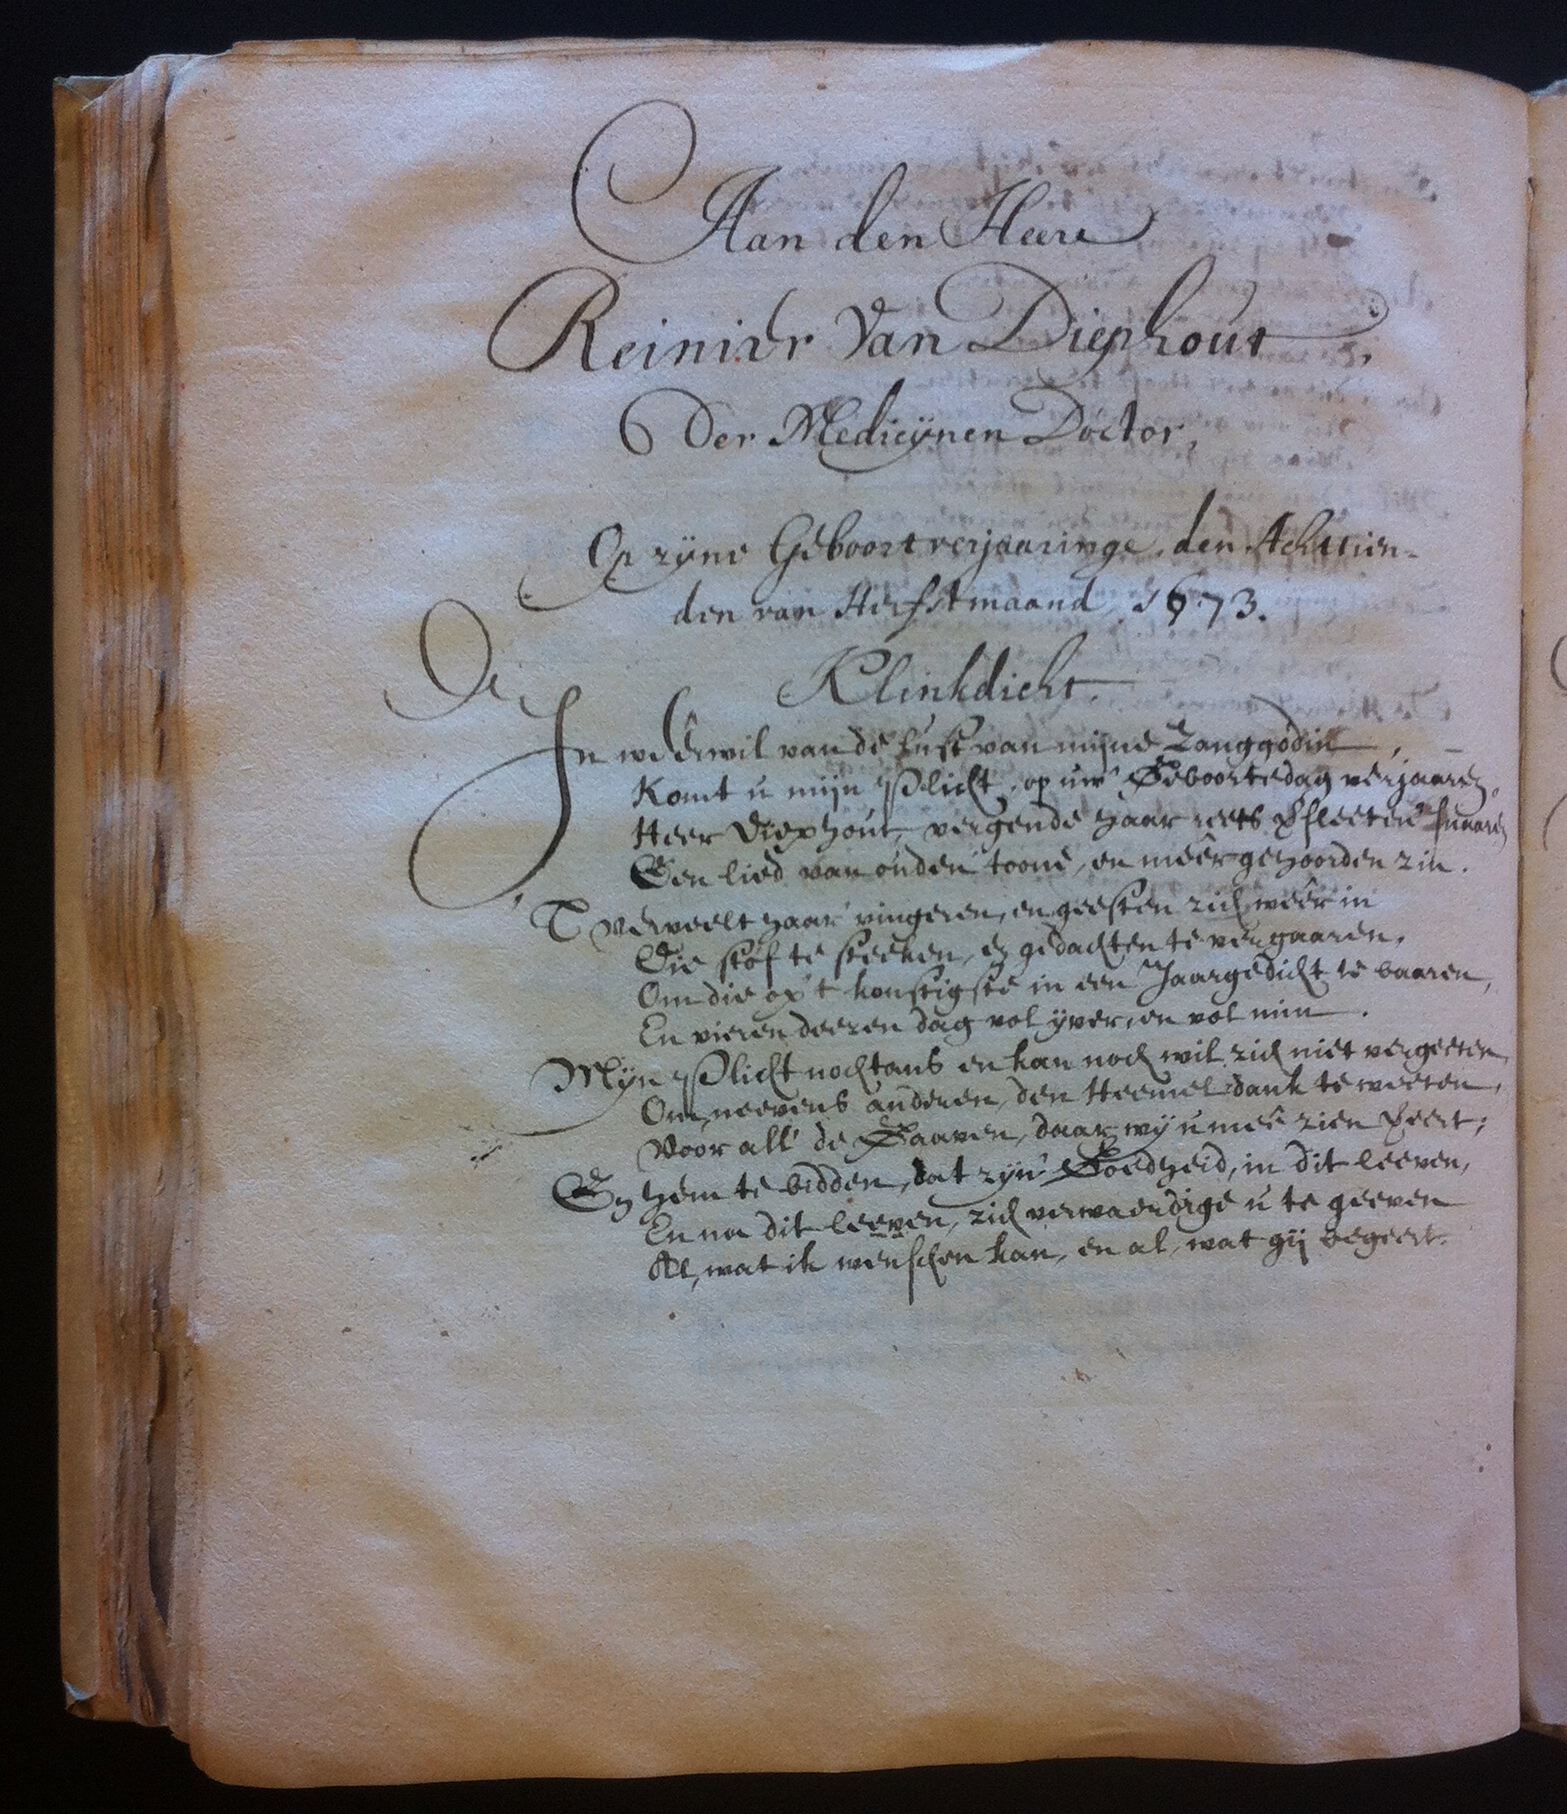 Aan den Heere
Reinier Van Diephout,
Der Medicynen Doctor,
Op zyne Geboortverjaaringe, den Achttien-
den van Herfstmaand, 1673.
Klinkdicht.
In weêrwil van de lust van mijne Zanggodin,
Komt u mijn Plicht, op uw' Geboortedag verjaaren,
Heer Diephout, vergende haar reets snaaren
Een lied van ouden toone, en meêr gehoorden zin.
T verveelt haar vingeren, en geesten zich weêr in
Die stof te steeken, en gedachten te vergaaren,
Om die op 't konstigste in een Jaargedicht te baaren,
En vieren deezen dag vol yver, en vol min.
Mijn Plicht nochtans en kan noch wil zich niet vergeeten
Om, neevens anderen, den Heemel dank te weeten,
Voor all' de Gaaven, daar wy u meê zien
En hem te bidden, dat zyn' Goedheid, in dit leeven,
En na dit leeven, zich verwaerdige u te geeven
Al, wat ik wenschen kan, en al, wat gij begeert.